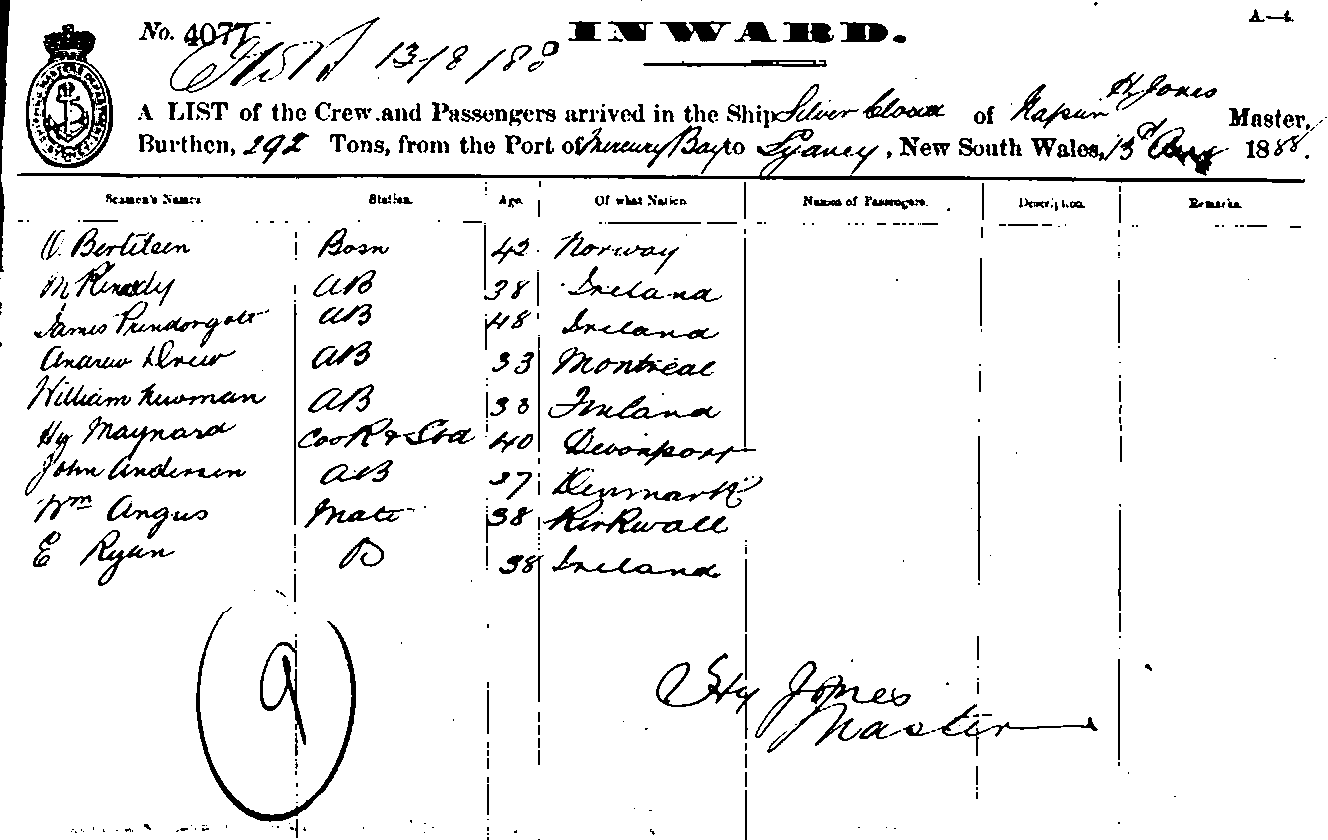 No. 4077
INWARD.
A.—4.
13/8/88
A LIST of the Crew and Passengers arrived in the Ship Silver Cloud of Napier H Jones Master,
Burthen, 292 Tons, from the Port of Mercury Bay to Sydney, New South Wales, 13th Aug 1888.
Seamen's Names Station. Age. Of what Nation. Names of Passengers. Description. Remarks.
O. Bertilsen Bosn 42 Norway
M Kenedy AB 38 Ireland
James Prendorgast AB 48 Ireland
Andrew Drew AB 33 Montreal
William Newman AB 33 Finland
Hy Maynard Cook & Std 40 Devonport
John Andersen AB 37 Denmark
Wm Angus Mate 38 Kirkwall
E Ryan B 38 Ireland
9
Hy Jones
Master